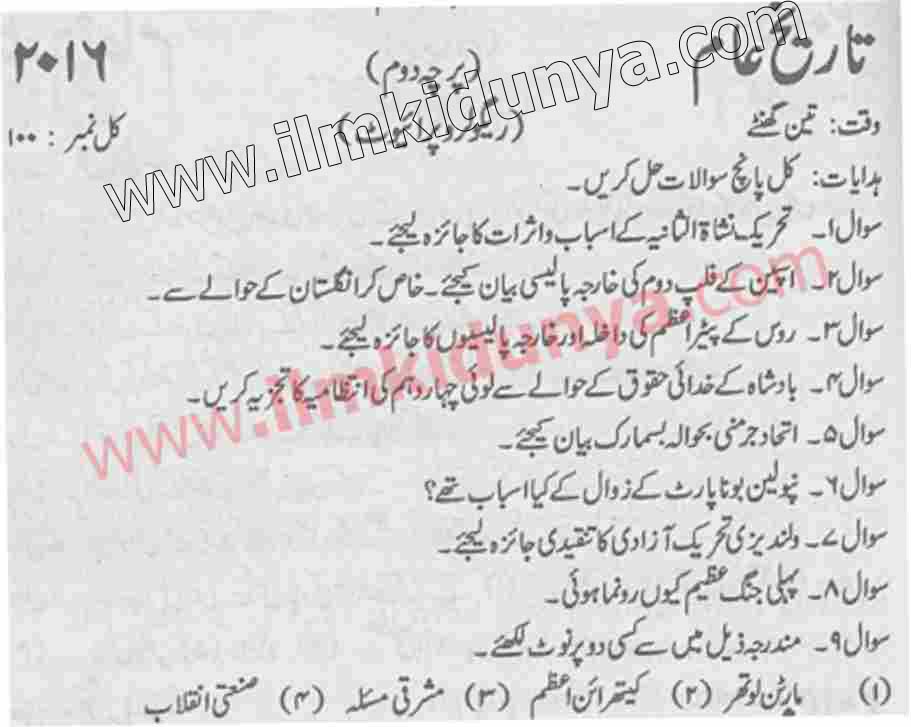 تاریخ عام
(پرچہ دوم)
۲۰۱۶
وقت: تین گھنٹے
(ریگولر و پرائیویٹ)
کل نمبر: ۱۰۰
ہدایات: کل پانچ سوالات حل کریں۔
سوال ۱۔ تحریک نشاۃ الثانیہ کے اسباب و اثرات کا جائزہ لیجئے۔
سوال ۲۔ اسپین کے فلپ دوم کی خارجہ پالیسی بیان کیجئے۔ خاص کر انگلستان کے حوالے سے۔
سوال ۳۔ روس کے پیٹر اعظم کی داخلہ اور خارجہ پالیسیوں کا جائزہ لیجئے۔
سوال ۴۔ بادشاہ کے خدائی حقوق کے حوالے سے لوئی چہاردہم کی انتظامیہ کا تجزیہ کریں۔
سوال ۵۔ اتحاد جرمنی بحوالہ بسمارک بیان کیجئے۔
سوال ۶۔ نپولین بوناپارٹ کے زوال کے کیا اسباب تھے؟
سوال ۷۔ ولندیزی تحریک آزادی کا تنقیدی جائزہ لیجئے۔
سوال ۸۔ پہلی جنگ عظیم کیوں رونما ہوئی۔
سوال ۹۔ مندرجہ ذیل میں سے کسی دو پر نوٹ لکھئے۔
(۱) مارٹن لوتھر (۲) کیتھرائن اعظم (۳) مشرقی مسئلہ (۴) صنعتی انقلاب
www.ilmkidunya.com
www.ilmkidunya.com